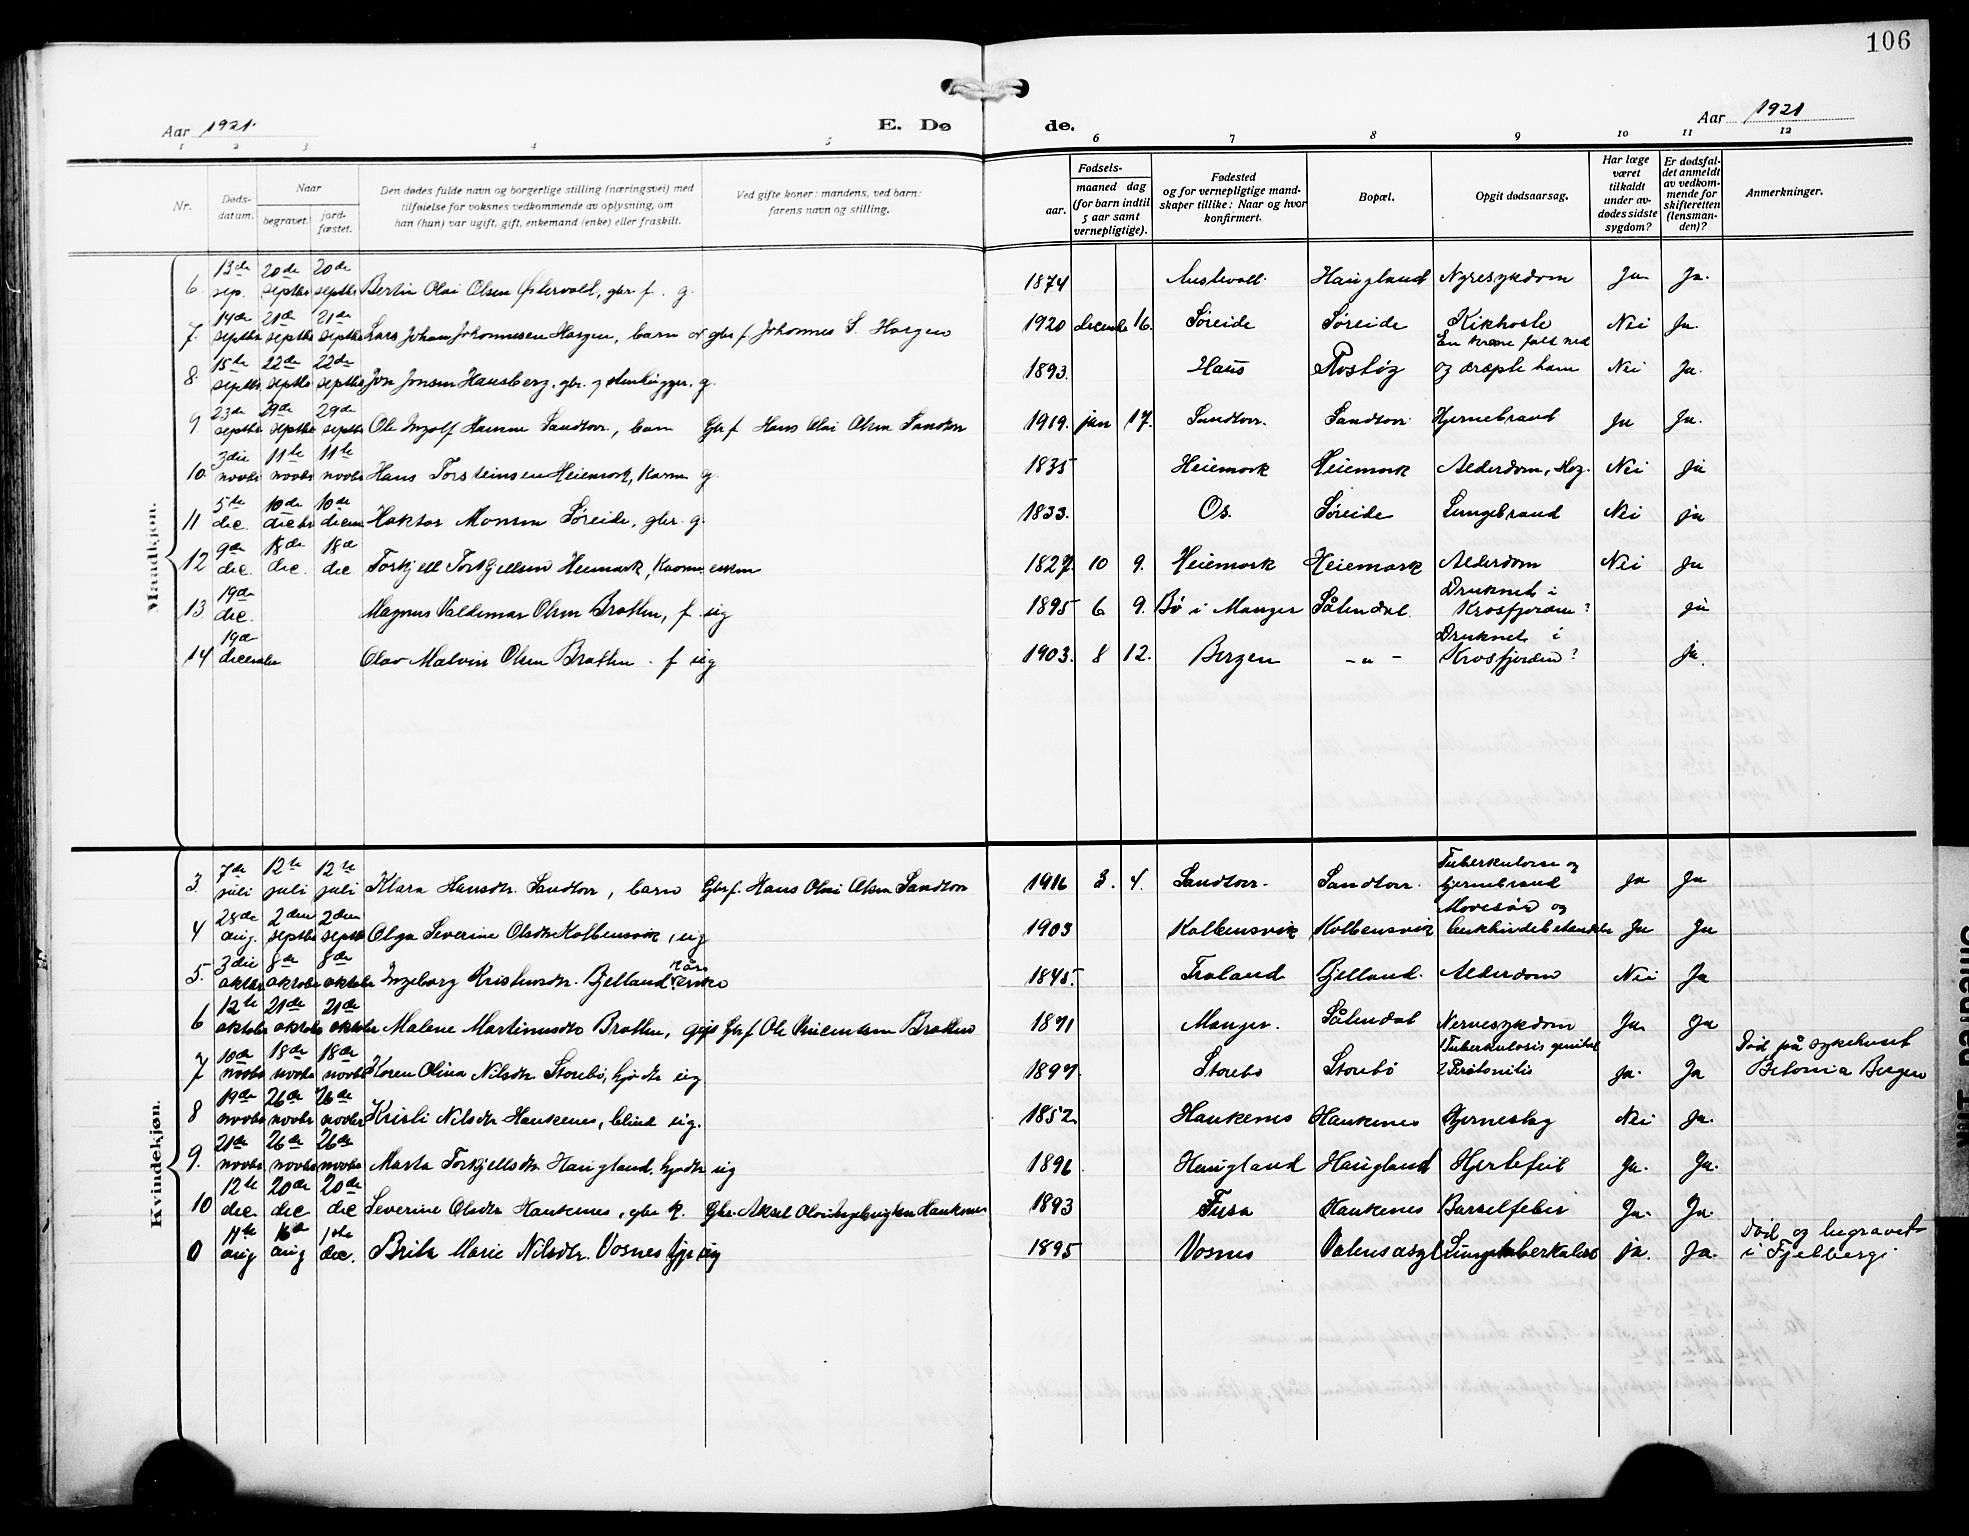 106
Aar 1921.
E. Dø de.
Aar 1921
1 2 3 4 5 6 7 8 9 10 11 12
Nr.
Døds-
datum.
Naar
begravet.
jord-
fæstet.
Den dødes fulde navn og borgerlige stilling (næringsvei) med
tilføielse for voksnes vedkommende av oplysning, om
han (hun) var ugift, gift, enkemand (enke) eller fraskilt.
Ved gifte koner: mandens, ved barn:
farens navn og stilling.
Fødsels-
aar.
maaned dag
(for barn indtil
5 aar samt
vernepligtige).
Fødested
og for vernepligtige mand-
skaper tillike: Naar og hvor
konfirmert.
Bopæl.
Opgit dødsaarsag.
Har læge
været
tilkaldt
under av-
dødes sidste
sygdom?
Er dødsfal-
det anmeldt
av vedkom-
mende for
skifteretten
(lensman-
den)?
Anmerkninger.
Mandkjøn.
6. 13de sep. 20de septbr 20de septbr Bertin Olai Olsen Østervold, gbr f. g. 1874 Austevoll Haugland Nyresykdom Ja Ja.
7. 14de septbr 21de septbr 21de septbr Lars Johan Johannesen Hargen, barn av gbr f Johannes S. Hargen 1920 decembr 16. Søreide Søreide Kikhoste Nei Ja.
8. 15de septbr 22de septbr 22de septbr Jon Jonsen Hausberg, gbr. og stenhugger, g. 1893. Haus Rostøy En krane falt ned og dræpte ham Nei Ja.
9 23de septbr 29de septbr 29de septbr Ole Ingolf Hansen Sandtorv, barn Gbr f Hans Olai Olsen Sandtorv 1919. jan 17. Sandtorv. Sandtorv Hjernebrand Ja Ja.
10. 3die novbr 11te novbr 11te novbr Hans Torsteinsen Heiemork, Kaarm g. 1835 Heiemork Heiemork Alderdom, Nei ja
11 5te dec. 10de decbr 10de decem Haktor Monsen Søreide, gbr. g. 1833. Os. Søreide Lungebrand Nei ja
12 9de dec. 18de dec. 18de dec Torkjell Torkjellsen Heiemork, Kaarm. enkem 1827. 10 9. Heiemork Heiemork Alderdom Nei Ja
13. 19de dec. Magnus Valdemar Olsen Bratten, f. ug 1895 6 9. Bø i Manger Sålendal. Druknet i Krosfjorden? ja
14 19de december Olav Malvin Olsen Bratten. f ug 1903. 8 12. Bergen -"- Druknet i Krosfjorden? ja.
Kvindekjøn.
3. 7de juli 12te juli 12te juli Klara Hansdtr. Sandtorv, barn Gbrf. Hans Olai Olsen Sandtorv 1916 3. 4. Sandtorv. Sandtorv. Tuberkulose og hjernebrand Ja Ja
4 28de aug. 2den septbr 2den septbr Olga Severine Olsdtr Kolbensvik, ug 1903 Kolbensvik Kolbensvik Mavesår og bukhindebetændelse Ja Ja
5. 3die oktbr 8de oktober 8de oktober Ingeborg Kristensdtr. Bjelland, Kår enke 1845. Troland Bjelland. Alderdom Nei Ja
6 12te oktober 21de oktober 21de oktober Malene Martinusdtr Bratten, gift Gbrf Ole Bratten 1871 Manger. Sålendal Nervesykdom Ja. Ja
7 10de novbr 18de novbr 18de novbr Karen Olina Nilsdtr Storebø, hjdtr ug 1897 Storebø Storebø Tuberkulosis genital Peritonitis Ja. Ja Død på sykehuset Betania Bergen
8 19de novbr 26de novbr 26de novbr Kristi Nilsdtr Haukenes, blind ug. 1852. Haukenes Haukenes Hjerneslag Nei Ja.
9. 21de novbr 26de novbr 26de novbr Marta Torkjellsdtr Haugland, hjdtr ug 1896 Haugland Haugland Hjertefeil Ja. Ja.
10 12te dec. 20de dec 20de dec Severine Olsdtr Haukenes, gbr k. Gbr. Aksel Olai Haukenes 1893 Fusa Haukenes Barselfeber Ja. Ja.
0 aug aug dec. Brita Marie Nilsdtr. Vosnes tjp ug 1895 Vosnes Lungetuberkulose ja. Ja. Død og begravet i Fjelberg